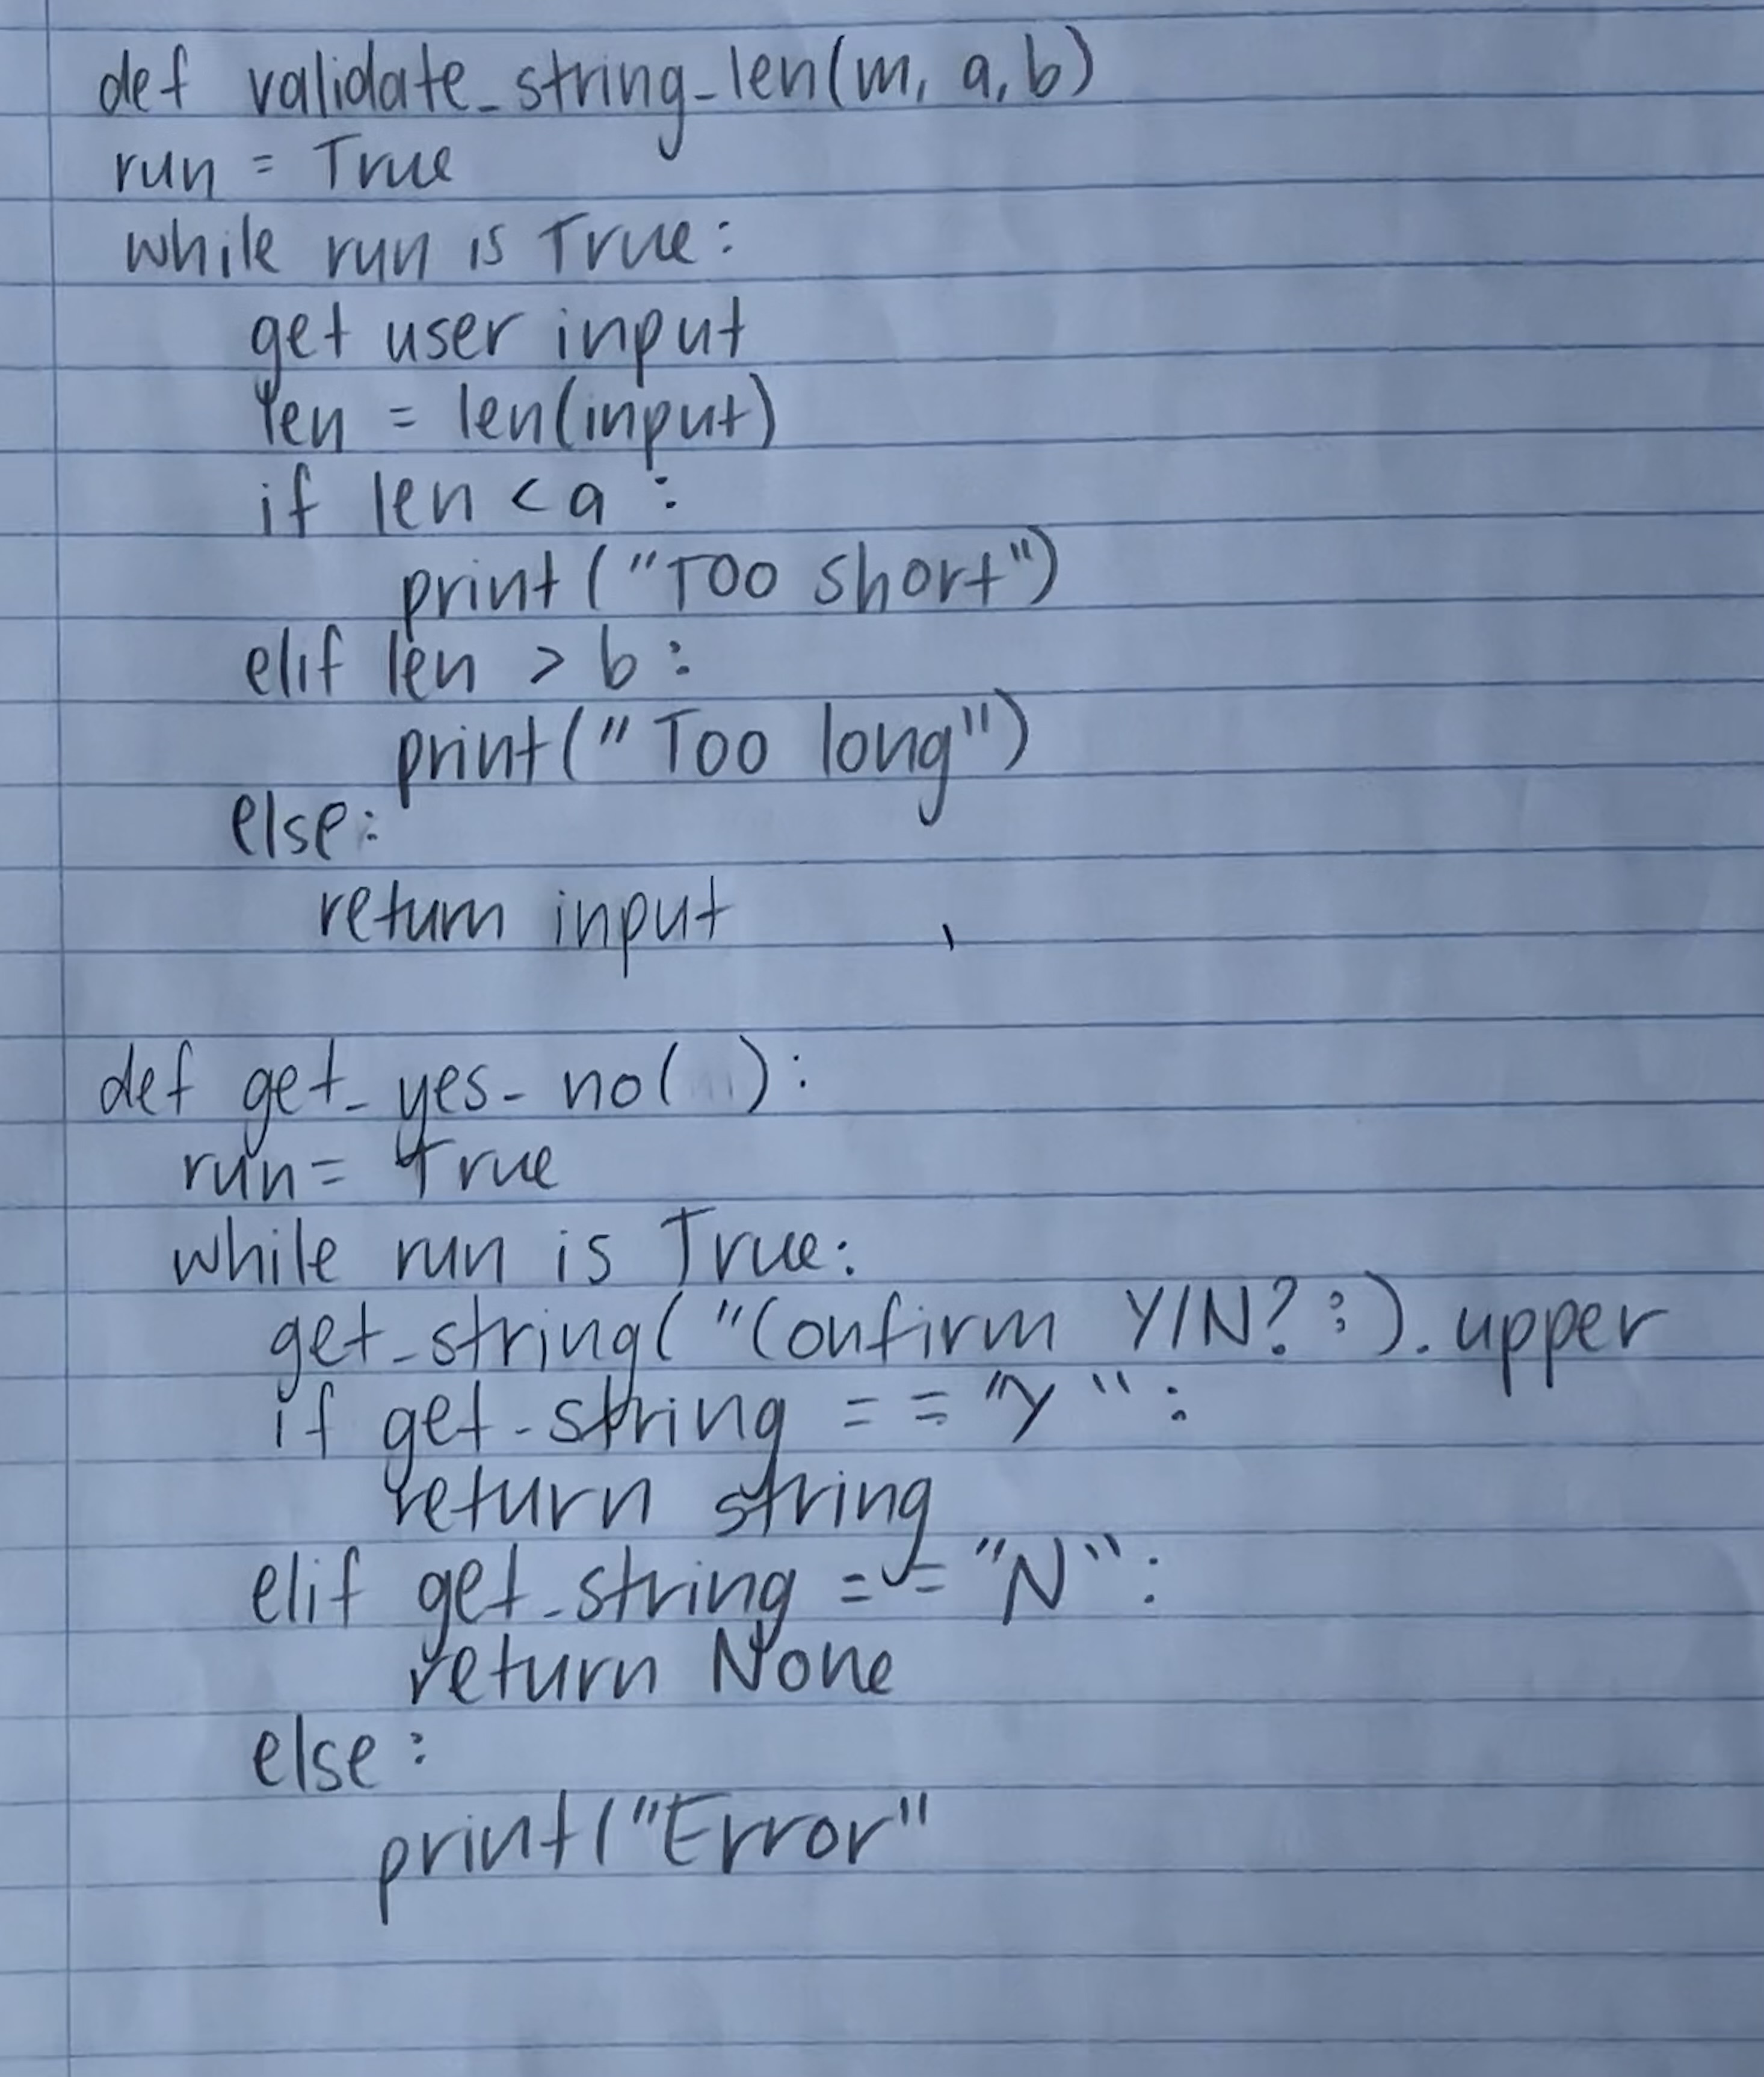 def validate_string_len(m, a, b)
run = True
while run is True:
get user input
len = len(input)
if len < a :
print ("Too short")
elif len > b :
print ("Too long")
else:
return input
def get_yes_no( ):
run = True
while run is True:
get_string( "Confirm Y/N? :). upper
if get_string == "Y" :
return string
elif get_string == "N" :
return None
else :
print("Error"